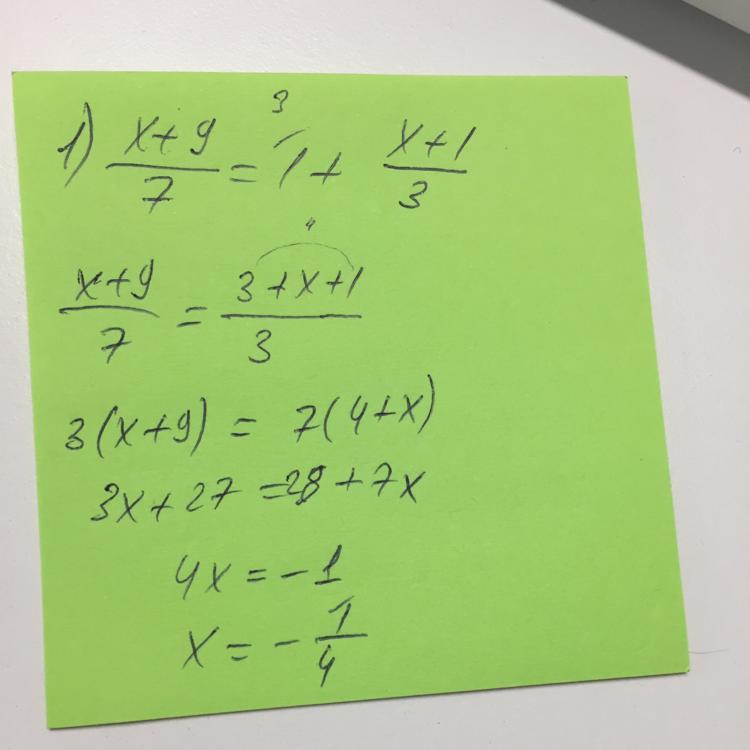 3
1) x+9/7 = 1 + x+1/3
4
x+9/7 = 3+x+1/3
3(x+9) = 7(4+x)
3x+27 = 28+7x
4x = -1
x = - 1/4